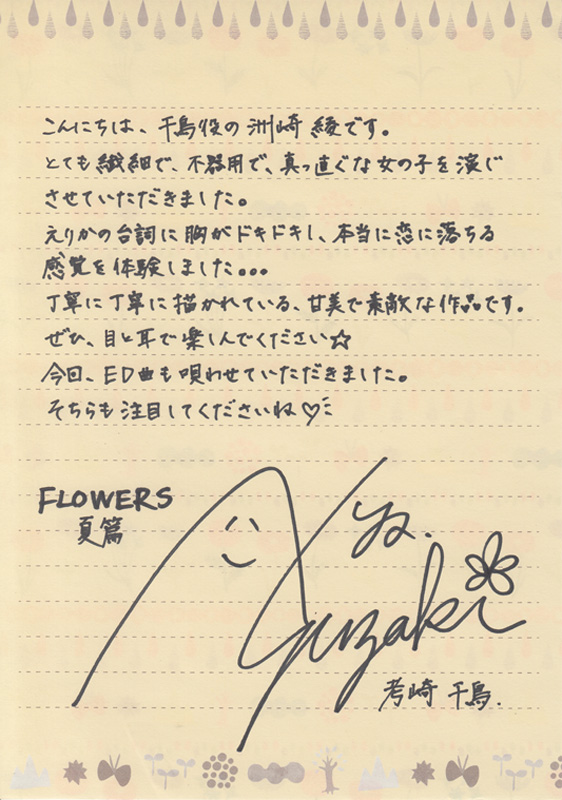 こんにちは、千鳥役の洲崎綾です。
とても繊細で、不器用で、真っ直ぐな女の子を演じ
させていただきました。
えりかの台詞に胸がドキドキし、本当に恋に落ちる
感覚を体験しました...
丁寧に丁寧に描かれている、甘美で素敵な作品です。
ぜひ、目と耳で楽しんでください☆
今回、ED曲も唄わせていただきました。
そちらも注目してくださいね♡
FLOWERS
夏篇
Aya.
Suzaki
考崎 千鳥.